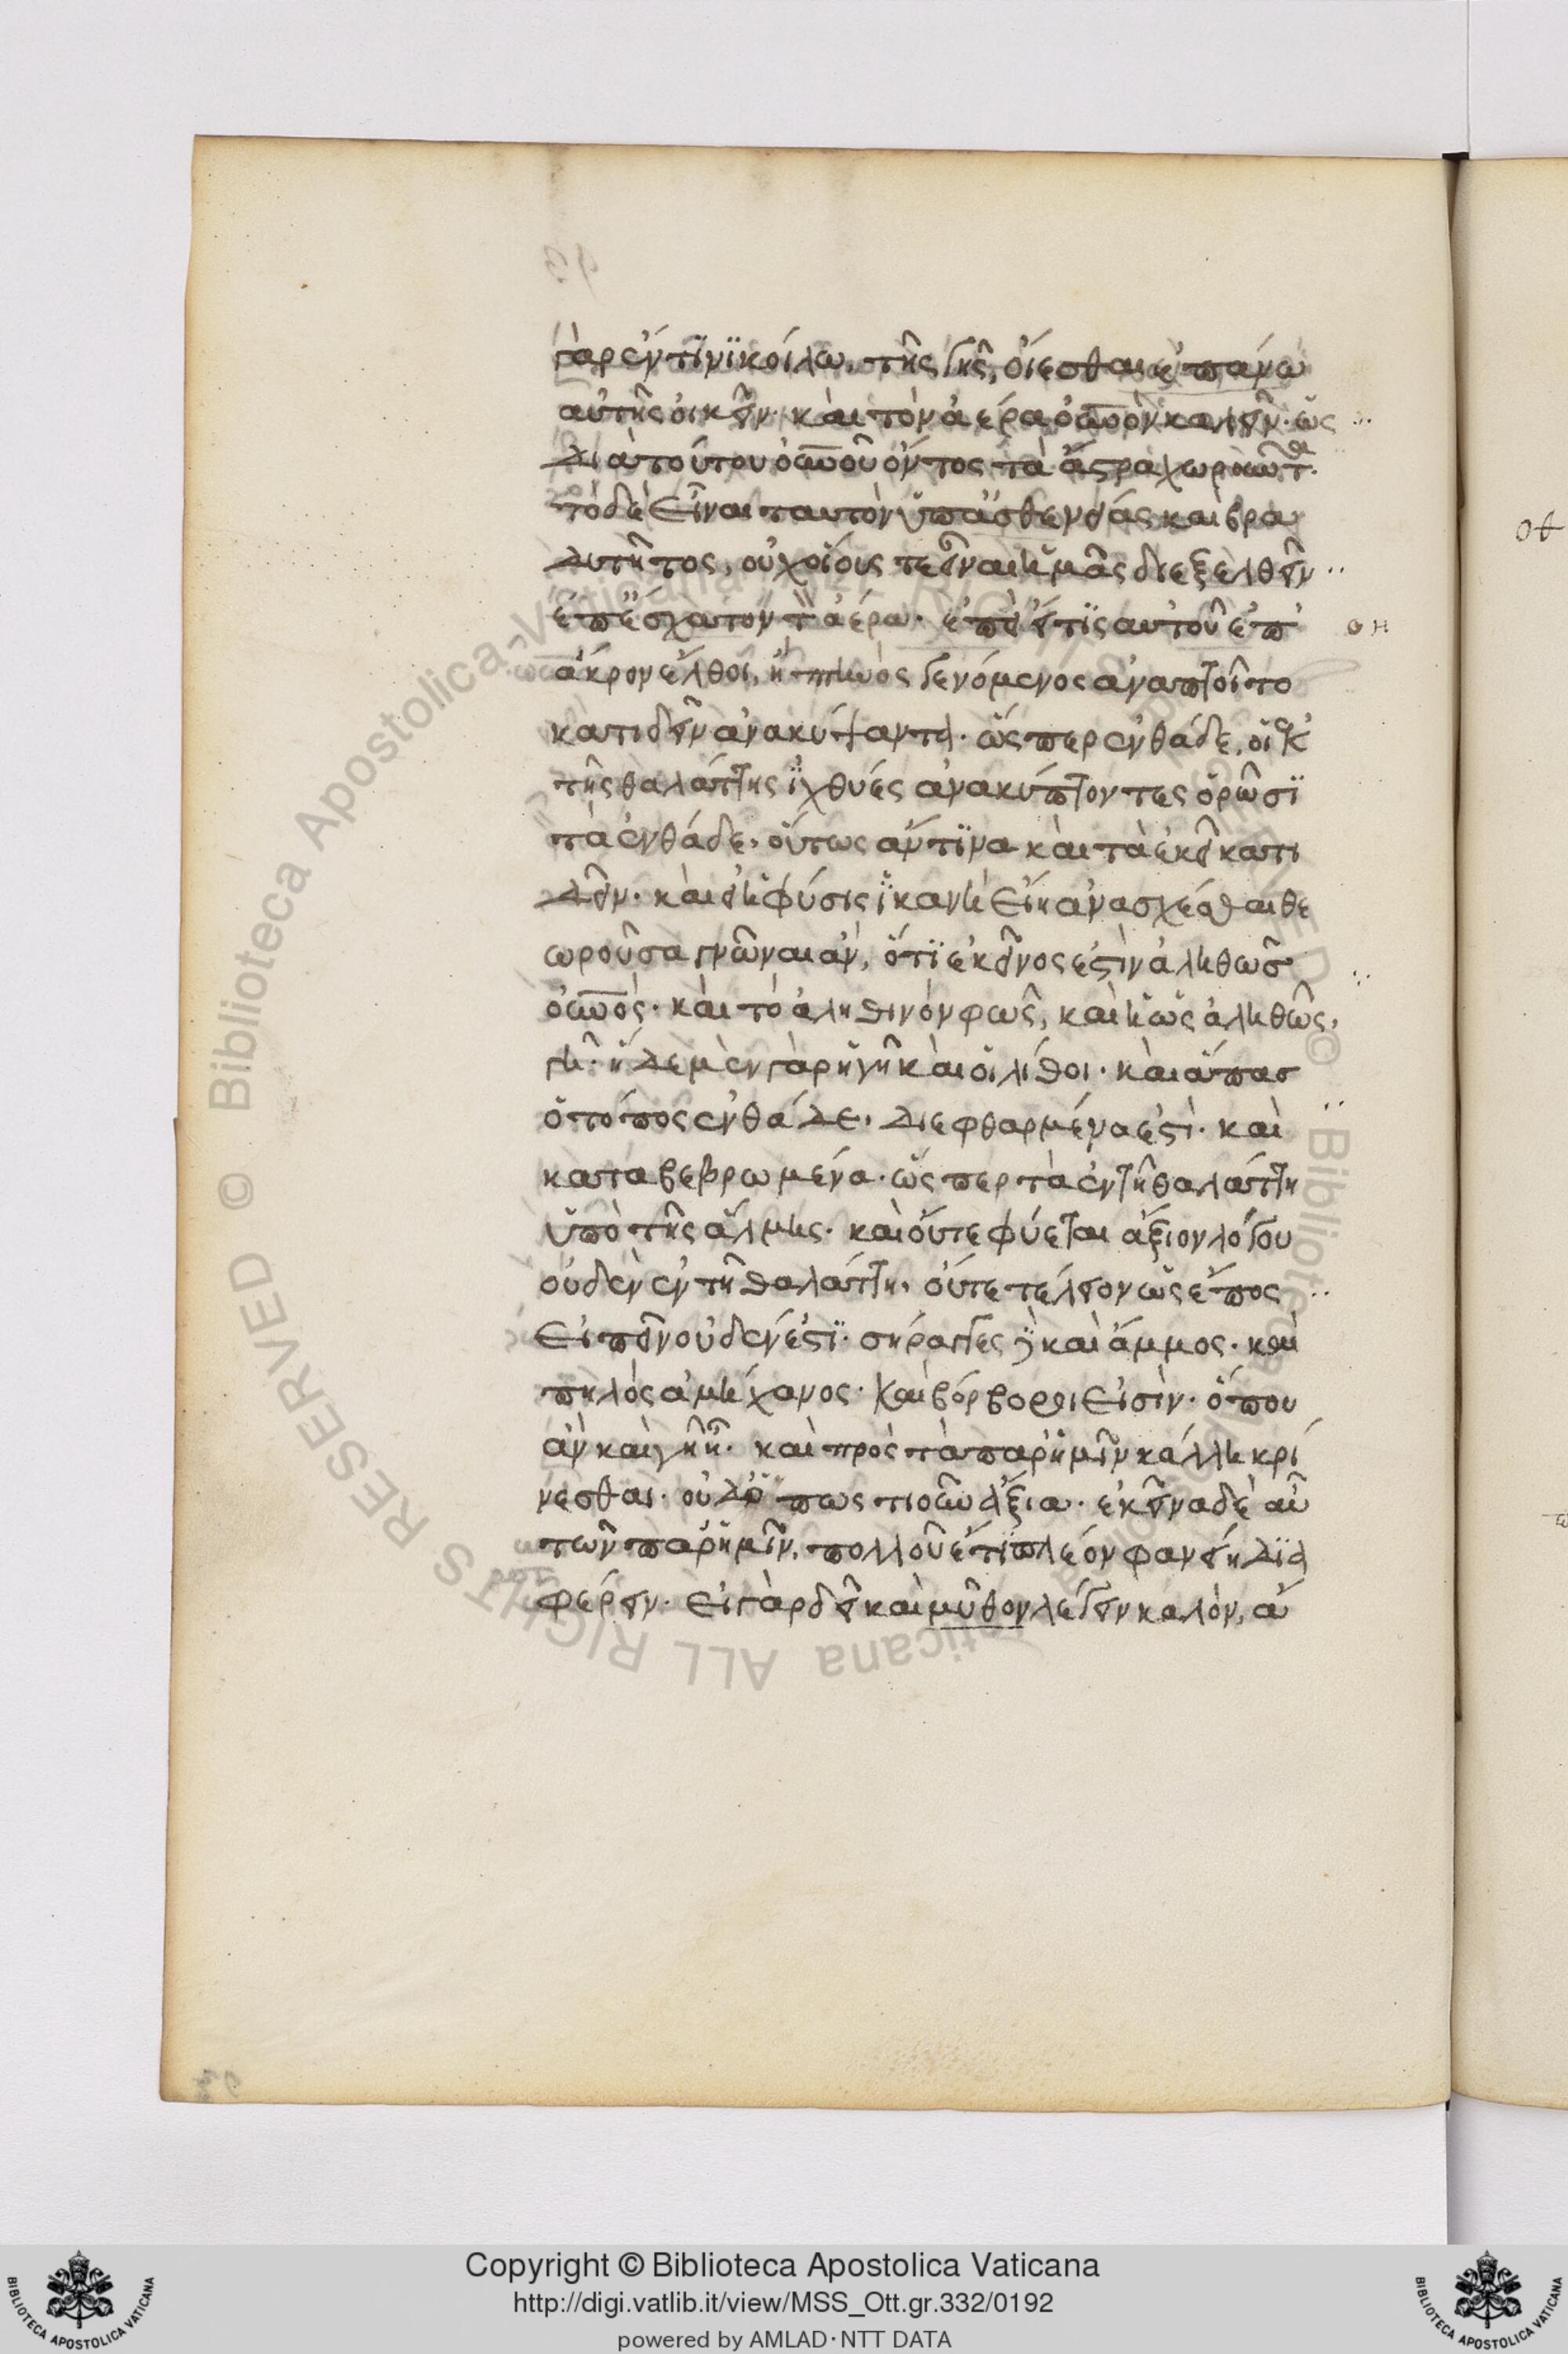 γὰρ ἔν τινι κοίλω, τῆς γῆς, οἴεσθαι ἐπάνω
αὐτῆς οἰκεῖν· καὶ τὸν ἀέρα οὐνὸν καλεῖν· ὡς
διὰ τούτου οὐνοῦ ὄντος τὰ ἄστρα χωροῦντα·
τὸ δὲ εἶναι ταυτὸν ὑπ' ἀσθενείας καὶ βρα
δυτῆτος, οὐχ οἵους τε εἶναι ἡμᾶς διεξελθεῖν
ἐπ' ἔσχατον τὸν ἀέρα· ἐπεὶ εἴ τις αὐτοῦ ἐπ'
ἄκρον ἔλθοι, ἢ πτηνὸς γενόμενος ἀνάπτοιτο
κατιδεῖν ἀνακύψαντα· ὥσπερ ἐνθάδε, οἱ ἐκ
τῆς θαλάττης ἰχθύες ἀνακύπτοντες ὁρῶσι
τὰ ἐνθάδε, οὕτως ἄν τινα καὶ τὰ ἐκεῖ κατι
δεῖν· καὶ εἰ ἡ φύσις ἱκανὴ εἴη ἀνασχέσθαι θε
ωροῦσα γνῶναι ἄν, ὅτι ἐκεῖνος ἐστὶν ἀληθῶς
οὐνός· καὶ τὸ ἀληθινὸν φῶς, καὶ ἡ ὡς ἀληθῶς,
γῆ· ἥδε μὲν γὰρ ἡ γῆ καὶ οἱ λίθοι· καὶ ἅπας
ὁ τόπος ἐνθάδε, διεφθαρμένα ἐστὶ· καὶ
καταβεβρωμένα· ὥσπερ τὰ ἐν τῆ θαλάττη
ὑπὸ τῆς ἅλμης· καὶ οὔτε φύεται ἄξιον λόγου
οὐδὲν ἐν τῆ θαλάττη, οὔτε τέλειον ὡς ἔπος
εἰπεῖν οὐδέν ἐστι· σήραγγες δὲ καὶ ἄμμος· καὶ
πηλὸς ἀμήχανος· καὶ βόρβοροι εἰσὶν· ὅπου
ἂν καὶ γῆ ἦ· καὶ πρὸς τὰ παρ' ἡμῖν κάλλη κρί
νεσθαι· οὐδ' ὁπωστιοῦν ἄξια· ἐκεῖνα δὲ αὖ
τῶν παρ' ἡμῖν, πολλοῦ ἔτι πλέον φανείη δια
φέρειν· εἰ γὰρ δεῖ καὶ μῦθον λέγειν καλὸν, ἄ